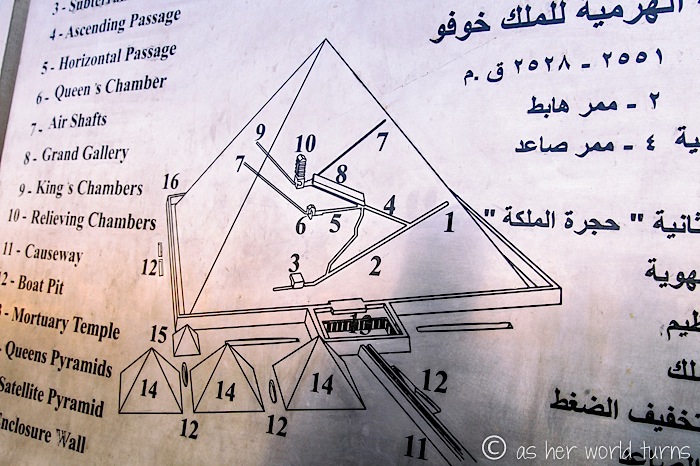 3 - Subterran
4 - Ascending Passage
5 - Horizontal Passage
6 - Queen's Chamber
7 - Air Shafts
8 - Grand Gallery
9 - King's Chambers
10 - Relieving Chambers
11 - Causeway
12 - Boat Pit
- Mortuary Temple
- Queens Pyramids
Satellite Pyramid
Enclosure Wall
الهرمية للملك خوفو
٢٥٥١ - ٢٥٢٨ ق.م
٢ - ممر هابط
٤ - ممر صاعد
ثانية " حجرة الملكة "
هوية
ظيم
لك
خفيف الضغط
9
10
7
7
8
16
4
1
6
5
12
3
2
15
13
14
14
14
12
12
12
11
© as her world turns